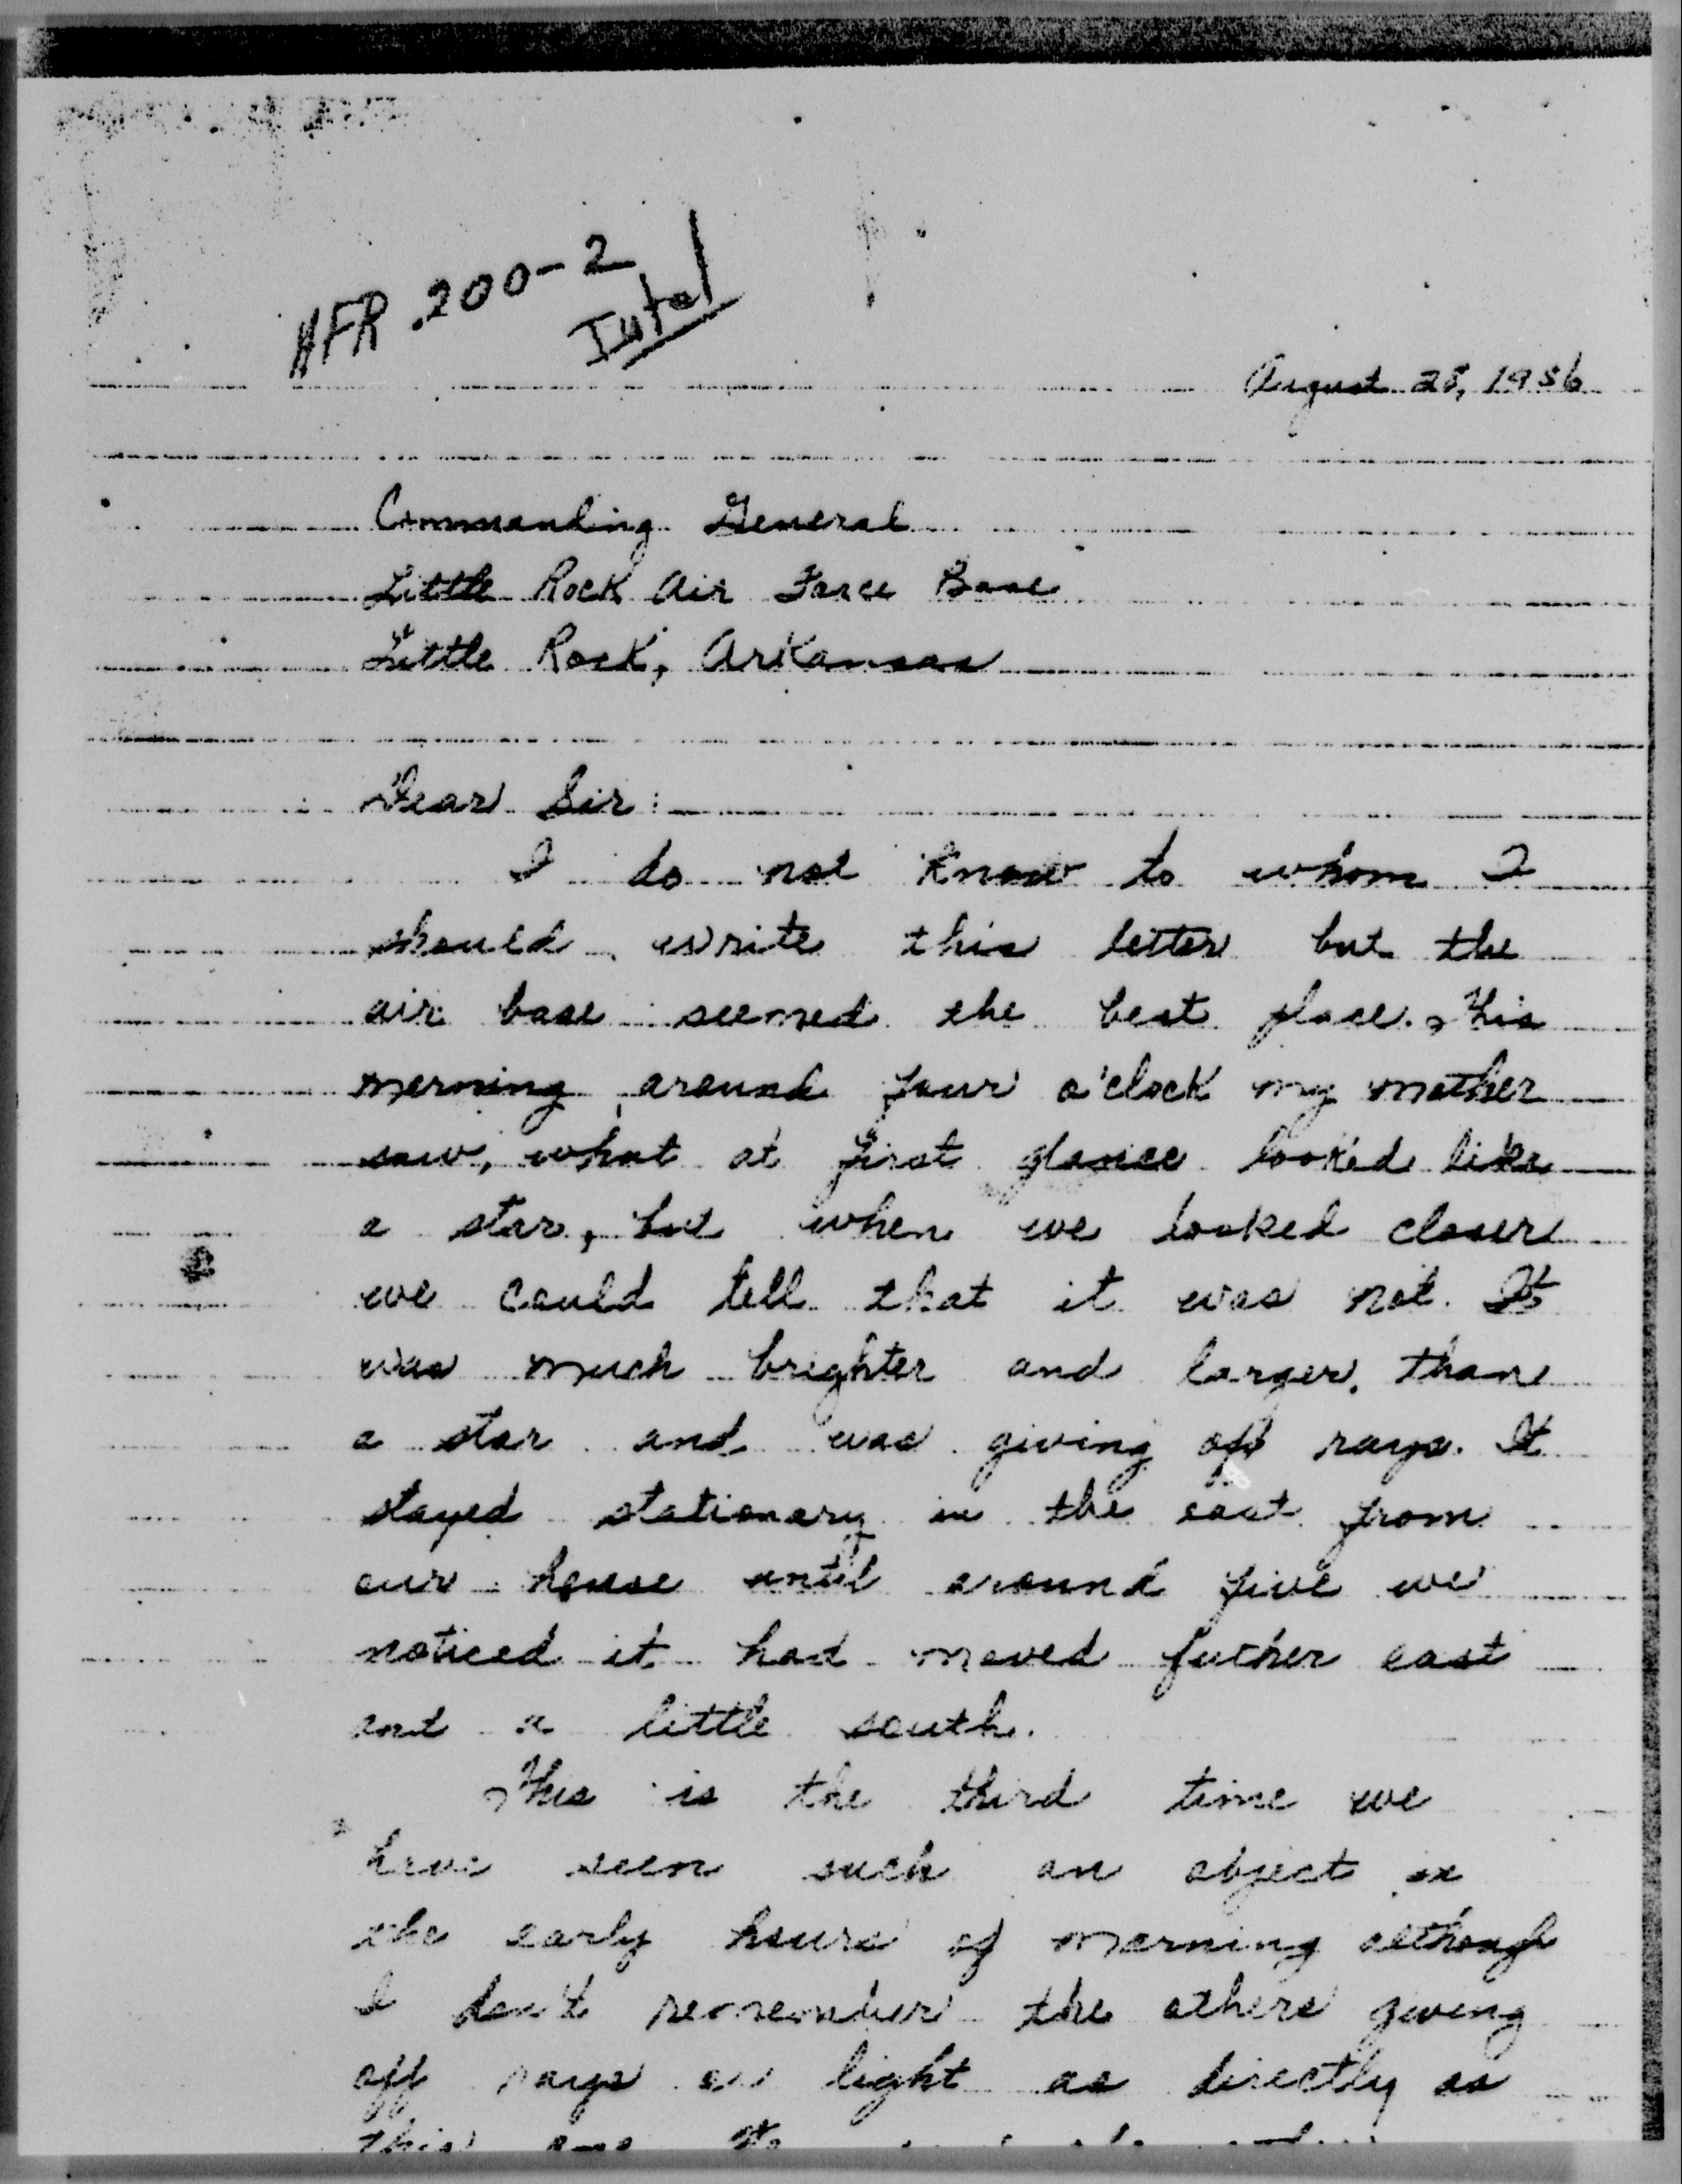 AFR 200-2
Intel
August 28, 1956
Commanding General
Little Rock Air Force Base
Little Rock, Arkansas
Dear Sir:
I do not know to whom I
should write this letter but the
air base seemed the best place. This
morning around four o'clock my mother
saw, what at first glance looked like
a star, but when we looked closer
we could tell that it was not. It
was much brighter and larger than
a star and was giving off rays. It
stayed stationary in the east from
our house until around five we
noticed it had moved futher east
and a little south.
This is the third time we
have seen such an object in
the early hours of morning although
I don't remember the others giving
off rays or light as directly as
this one